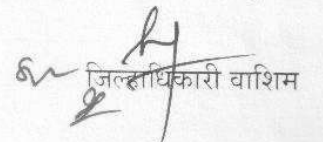 जिल्हाधिकारी वाशिम